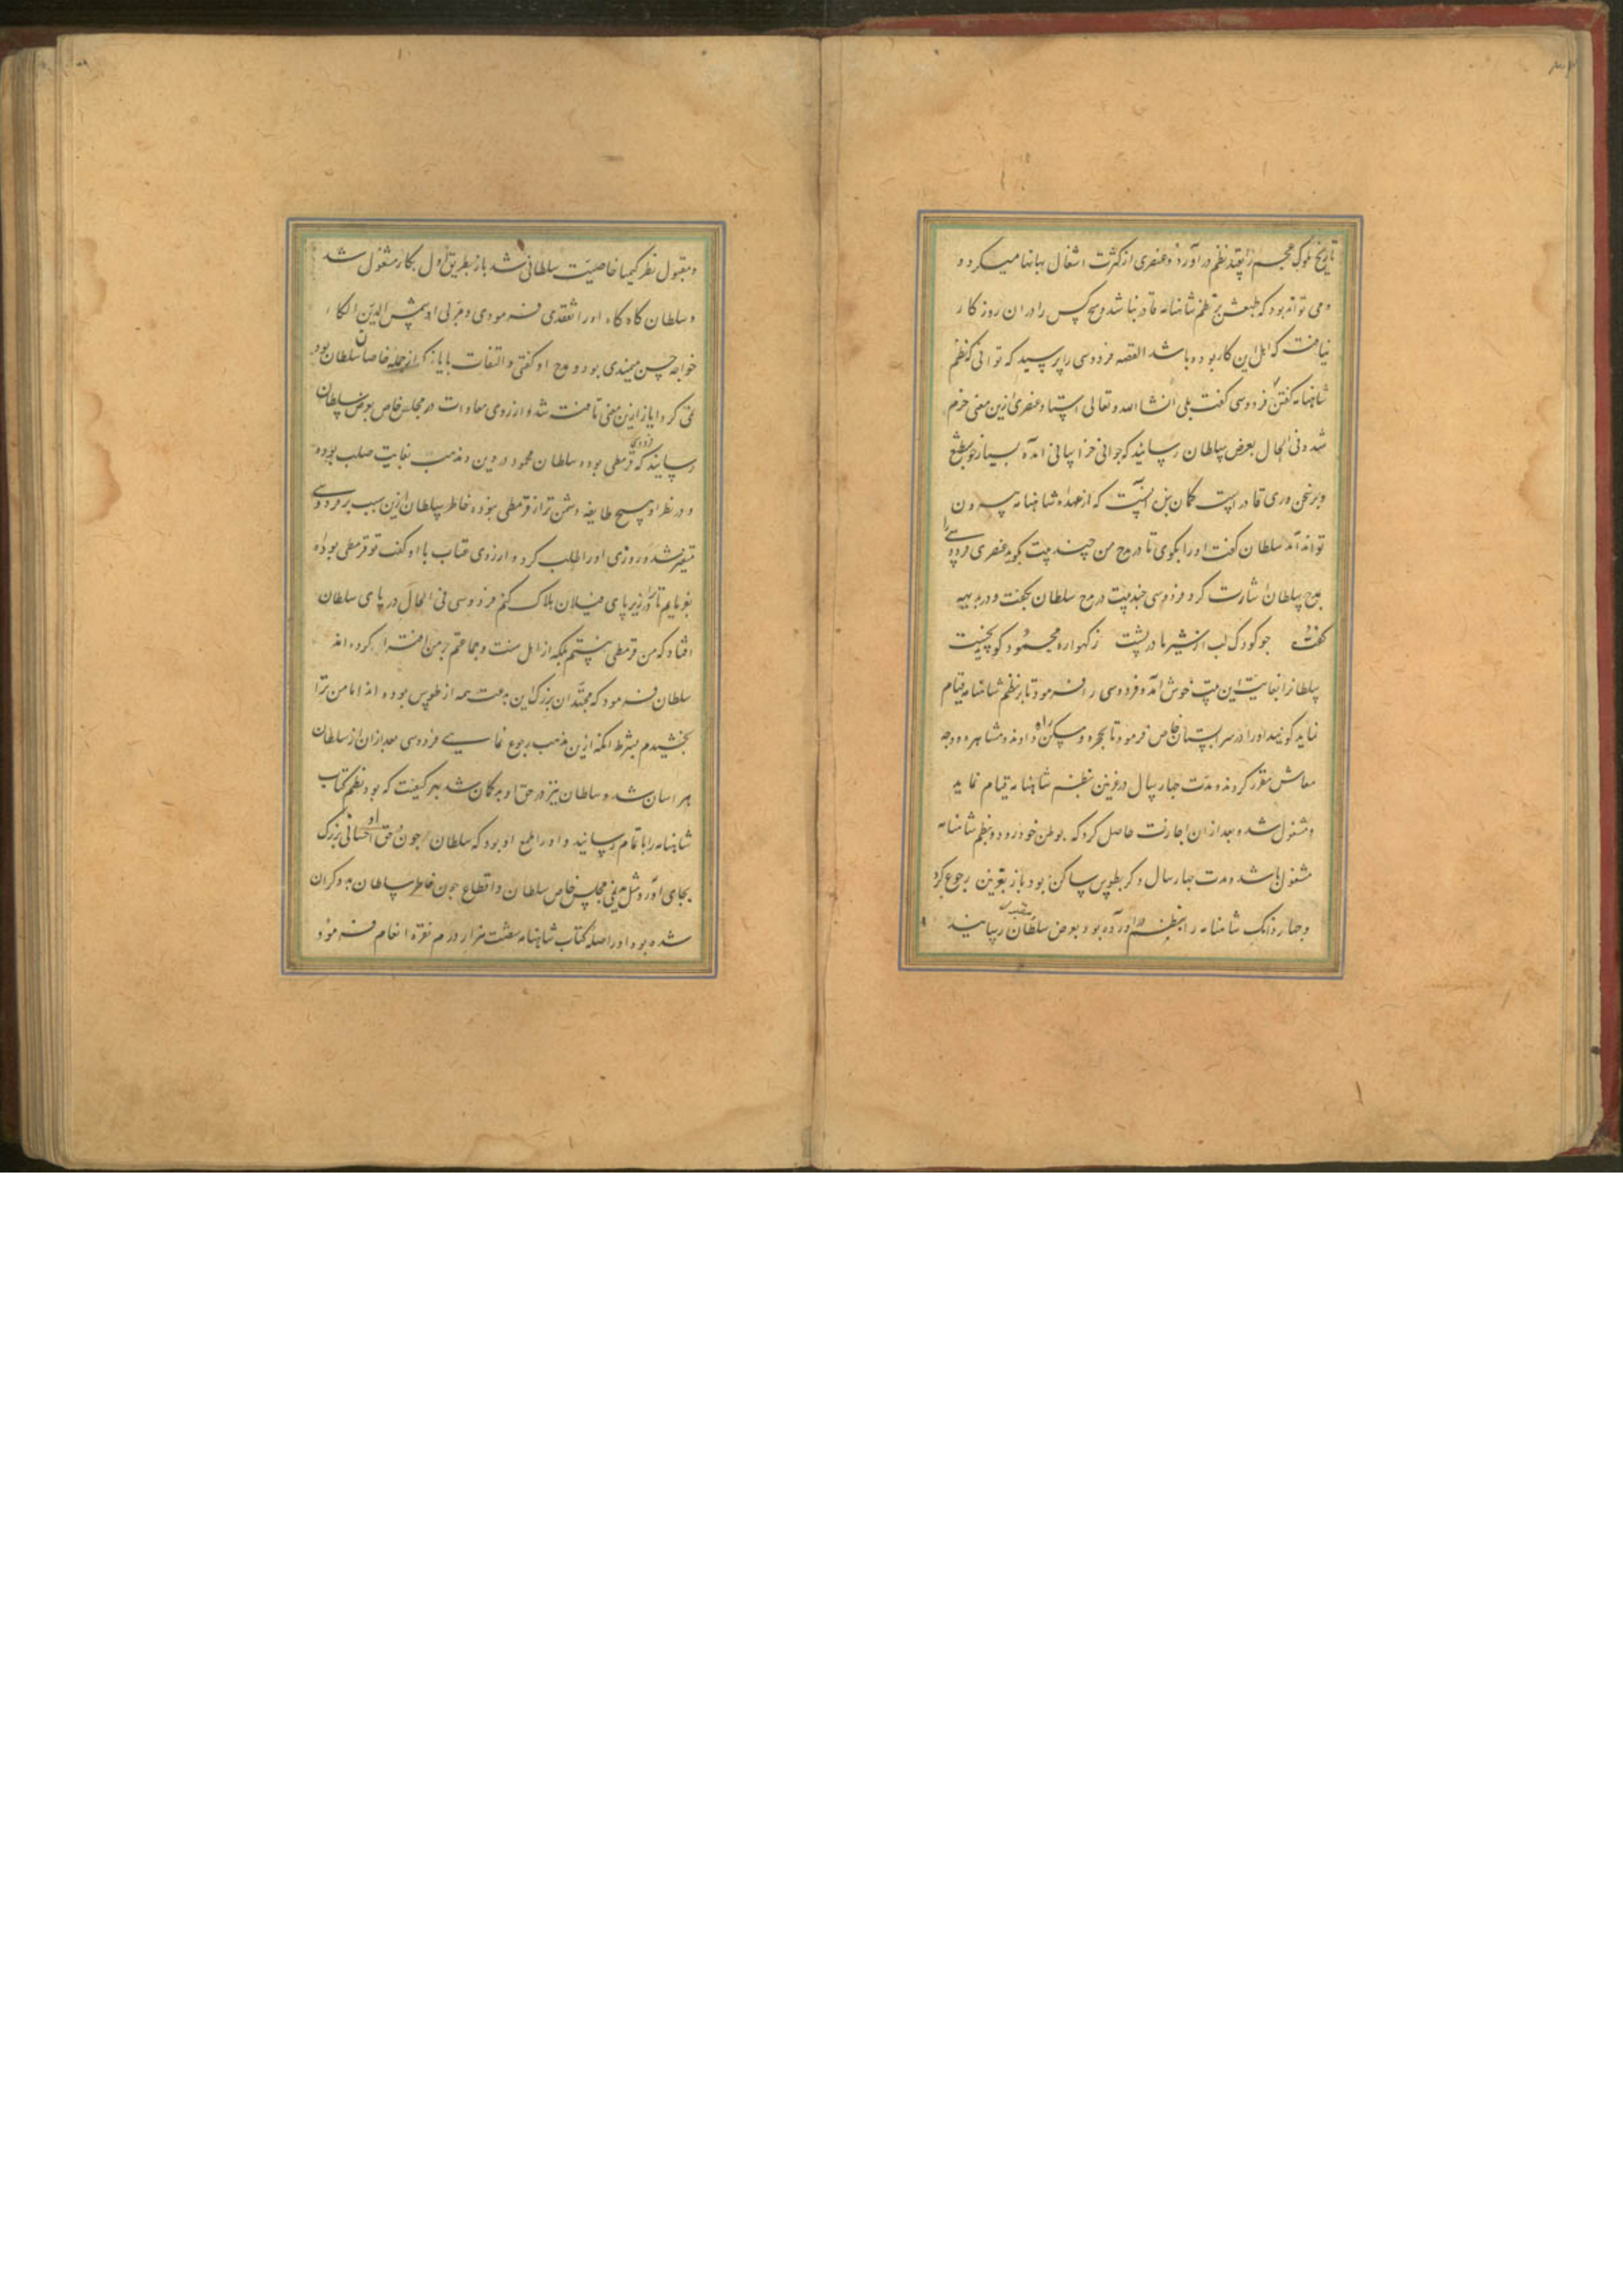 تاریخ ملوک عجم را بقید نظم در آورد و عنصری از کثرت اشغال بهانها میکرد و
و می تواند بود که طبعش بر نظم شاهنامه قادر نباشد و هیچ کس را دران روزکار
نیافت که اهل این کار بوده باشد القصه فردوسی را پرسید که توانی که نظم
شاهنامه کفتن فردوسی کفت بلی انشا الله و تعالی استاد عنصری ازین معنی خرم
شد و فی الحال بعرض سلطان رسانید که جوانی خراسانی آمده بسیار خوش طبع
و بر سخن وری قادر است کمان بنده آنست که از عهده شاهنامه بیرون
تواند آمد سلطان کفت او را بکوی تا در مدح من چند بیت بکوید عنصری فردوسی را
بمدح سلطان اشارت کرد فردوسی چند بیت در مدح سلطان بکفت و در بدیهه
کفت جو کودک لب از شیر مادر بشست ز کهواره محمود کوید نخست
سلطانرا بغایت این بیت خوش آمد و فردوسی را فرمود تا بر نظم شاهنامه قیام
نماید کویند او را در سرابستان خاص فرمود تا حجره و مسکن دادند و مشاهره و وجه
معاش مقرر کردند و مدت چهار سال در غزنین بنظم شاهنامه قیام نماید
و مشغول شد و بعد ازان اجازت حاصل کرد که بوطن خود رود و بنظم شاهنامه
مشغول باشد و مدت چهار سال دکر بطوس ساکن بود باز بغزنین رجوع کرد
و چهار دانک شاهنامه را بنظم در آورده بود بعرض سلطان رسانید
و مقبول نظر کیمیا خاصیت سلطانی شد باز بطریق اول بکار مشغول شد
و سلطان کاه کاه او را تفقدی فرمودی و مربی او شمس الدین الکفا
خواجه حسن میمندی بود و مدح او کفتی و التفات بایاز که از جمله خاصان سلطان بود
نمی کرد ایاز ازین معنی تافت شد و از روی معادات در مجلس خاص بعرض سلطان
رسانید که فردوسی قرمطی بوده و سلطان محمود در دین و مذهب بغایت صلب بوده
و در نظر او هیچ طایفه دشمن تر از قرمطی نبوده خاطر سلطان ازین سبب بر فردوسی
متغیر شد و روزی او را طلب کرد و از روی عتاب با او کفت تو قرمطی بوده
بفرمایم تا ترا در زیر پای فیلان هلاک کنم فردوسی فی الحال در پای سلطان
افتاد که من قرمطی نیستم بلکه از اهل سنت و جماعتم بر من افترا کرده اند
سلطان فرمود که مجتهدان بزرک این بدعت همه از طوس بوده اند اما من ترا
بخشیدم بشرط آنکه ازین مذهب رجوع نمایی فردوسی بعد ازان از سلطان
هراسان شد و سلطان نیز در حق او بد کمان شد بهر کیفیت که بود نظم کتاب
شاهنامه را باتمام رسانید و او را طمع او بود که سلطان جون در حق او احسانی بزرک
بجای آورد مثل ندیمی مجلس خاص سلطان و اقطاع جون خاطر سلطان بدو کران
شده بود او را صله کتاب شاهنامه شصت هزار درم نقره انعام فرمود